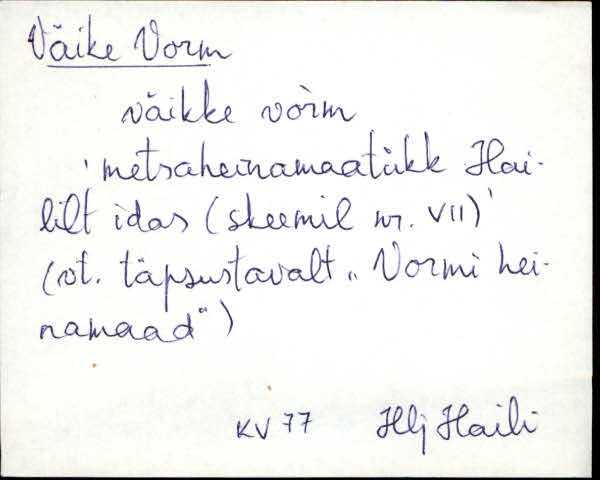 Väike Vorm
väikke vòrm
'metsaheinamaatükk Hai-
lilt idas (skeemil nr. VII)'
(vt. täpsustavalt „Vormi hei-
namaad“)
KV 77 Hlj Haili